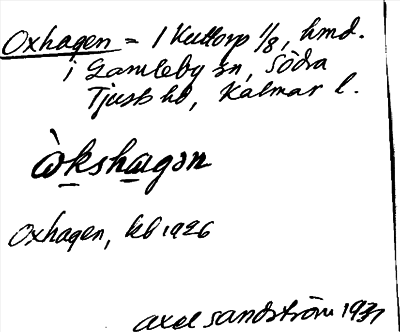 Oxhagen = 1 Kuttorp 1/8, hmd.
i Gamleby sn, Södra
Tjust hd, Kalmar l.
ò̀kshagən
Oxhagen, kb 1926
Axel Sandström 1931